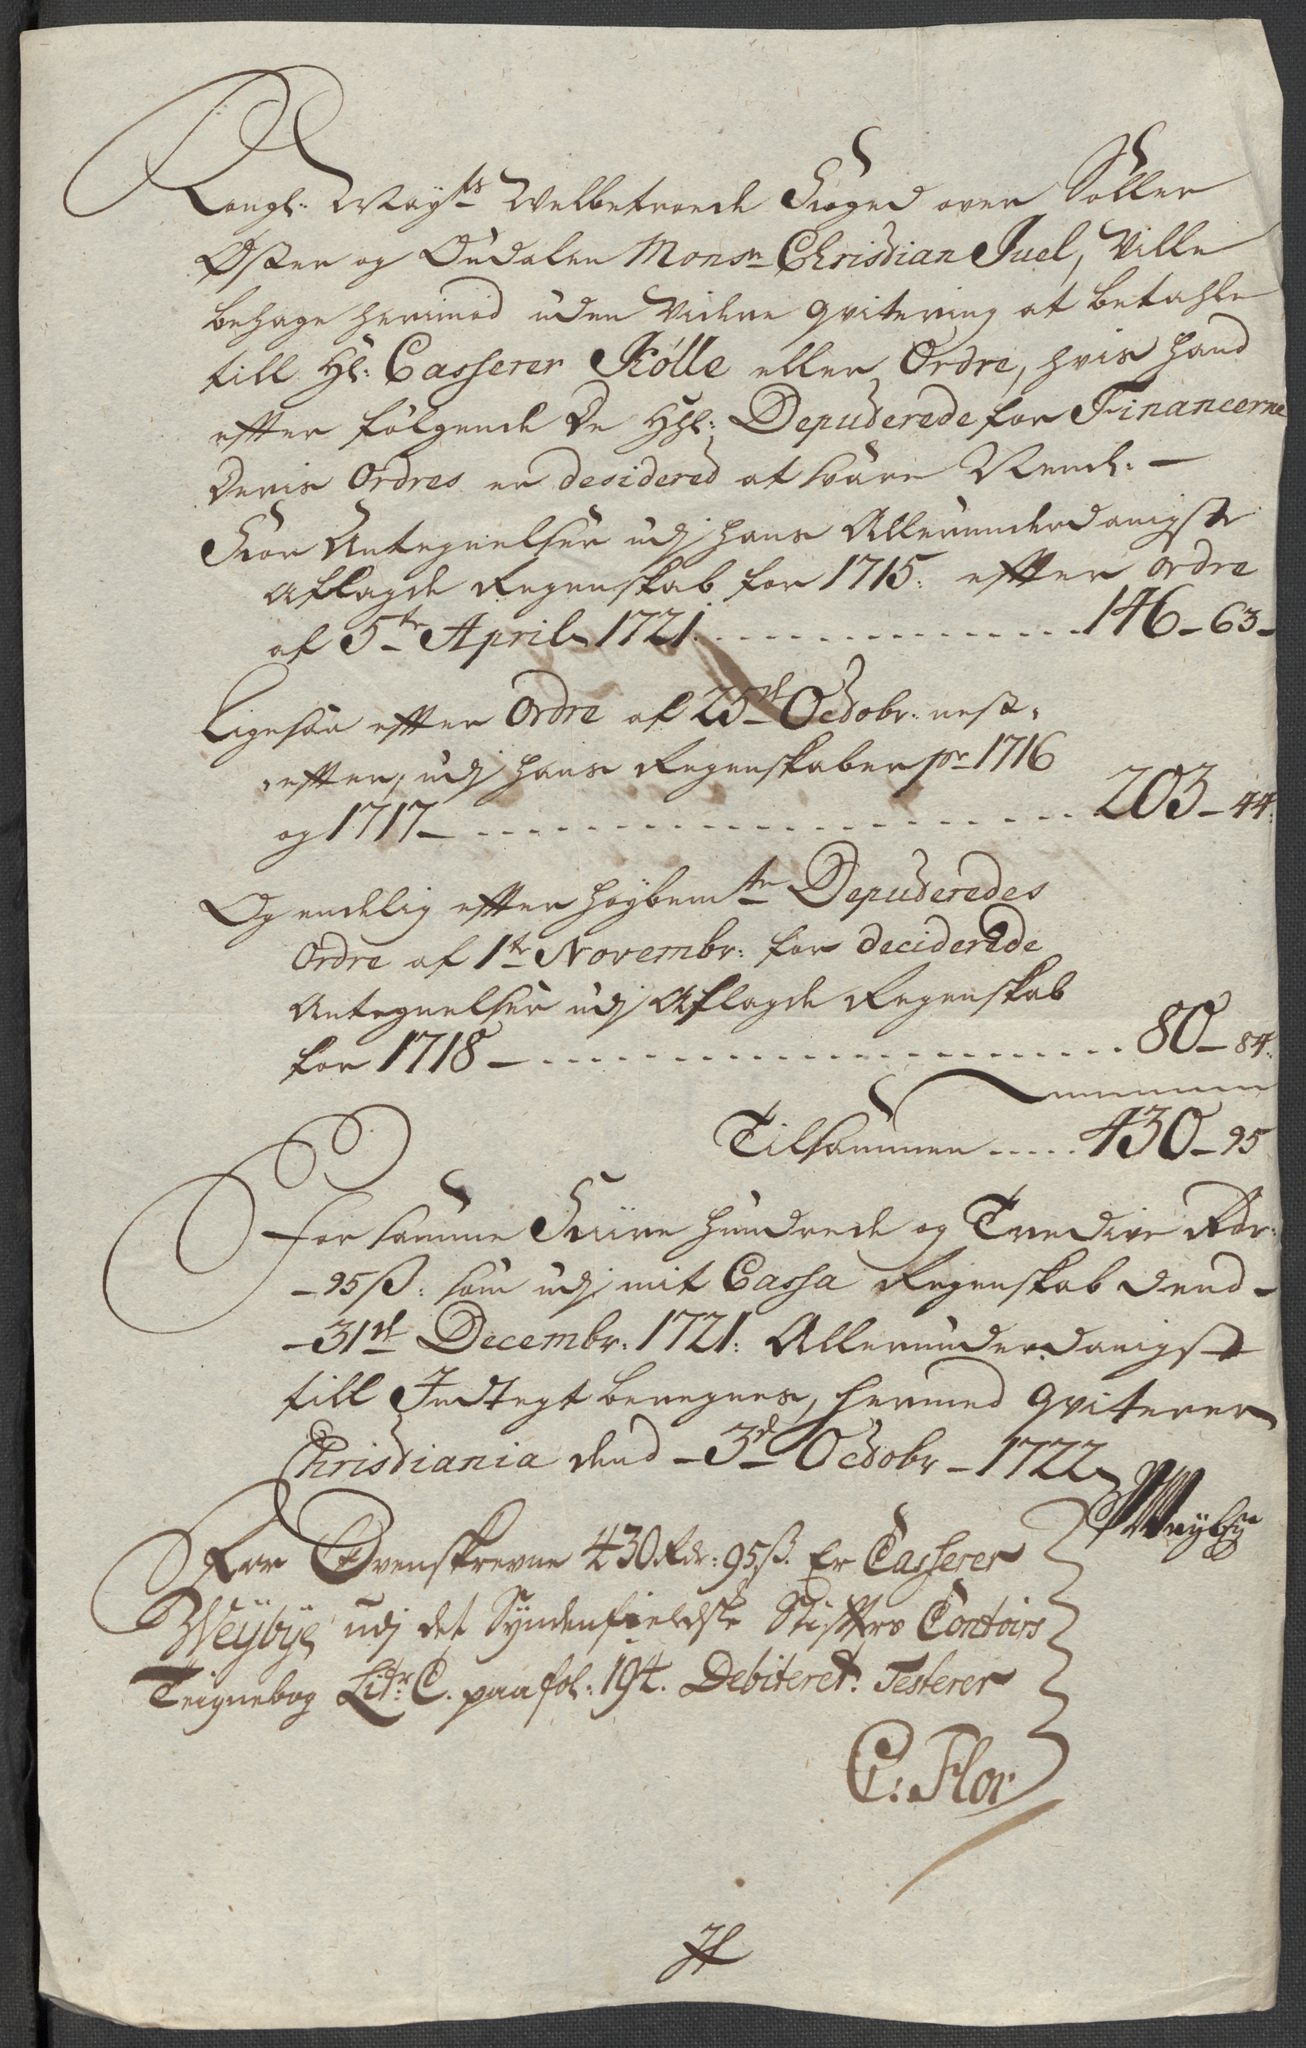 Kongl: Mayts Welbetroede Foged over Soller
Østen og Oudalen Monsr Christian Juel, Ville
behage herimod uden Videre qvitering at betahle
till Hl: Casserer Kølle eller Ordre, hvis hand
efter følgende De HHl: Deputerede for Financerne
Deris Ordres er desidered at svare Neml: —
For Antegnelser udj hans Allerunderdanigst
aflagde Regenskab for 1715: efter ordre
af 5te April 1721. - - - - - 146 – 63 –
Ligesaa efter Ordre af 25de Octobr: nest-
efter, udj hans Regenskaber pr 1716
og 1717 – - - - - - 203 – 44:
Og endelig efter høybemte Deputeredes
Ordre af 1te Novembr: for deciderede
Antegnelser udj Aflagde Regenskab
for 1718 – - - - - - 80 – 84:
Tilsammen - - - - 430 – 95
For samme Fiire hundrede og Tredive Rdr:
– 95 ß: som udj mit Cassa Regenskab dend –
– 31te Decembr: 1721: Allerunderdanigst
till Indtegt beregnes, hermed qviterer
Christiania dend – 3de Octobr – 1722
Weybye
For Ovenskrevne 430 Rdr: 95 ß. Er Casserer
Weybye udj det Syndenfieldske Stifters Contoirs
Teignebog Litr: C. paa fol: 194. Debiteret. Testerer
C. Flor